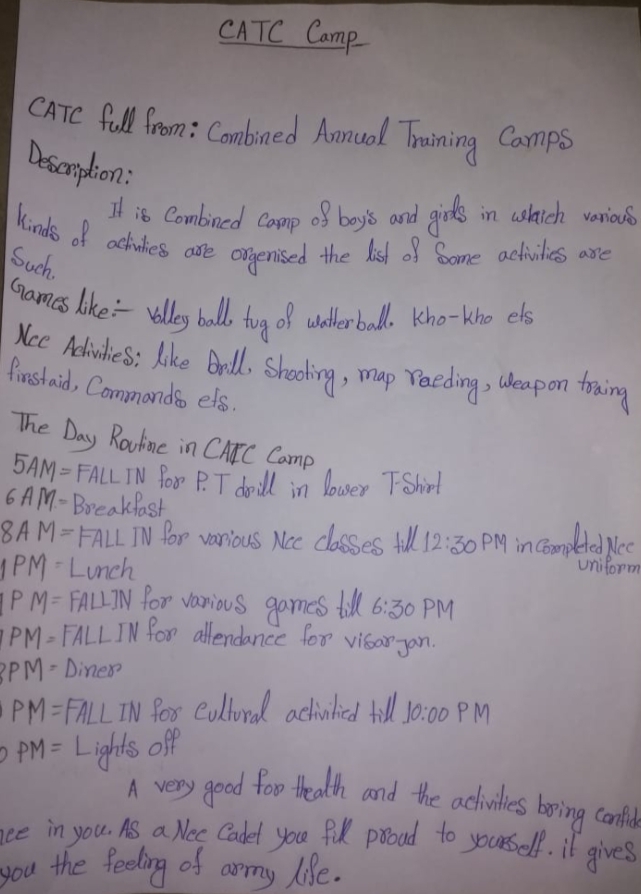 CATC Camp
CATC full from: Combined Annual Training Camps
Description:
It is Combined Camp of boy's and girls in whaich various
kinds of activities are orgenised the list of Some activities are
Such.
Games like:- Volley ball, tug of watter ball. Kho-Kho ets
Ncc Activities: like Drill, Shooting, map raeding, weapon traing
firstaid, Commands ets.
The Day Routine in CATC Camp
5AM = FALL IN for P.T drill in lower T-Shirt
6 AM - Breakfast
8 AM = FALL IN for various Ncc Classes till 12:30 PM in Completed Ncc
uniform
1PM - Lunch
PM = FALL IN for various games till 6:30 PM
PM = FALL IN for attendance for visarjan.
PM = Diner
PM = FALL IN for Cultural activitied till 10:00 PM
PM = Lights off
A very good for Health and the activities bring confide
nce in you. As a Ncc Cadet you fill proud to yourself. it gives
you the feeling of army life.